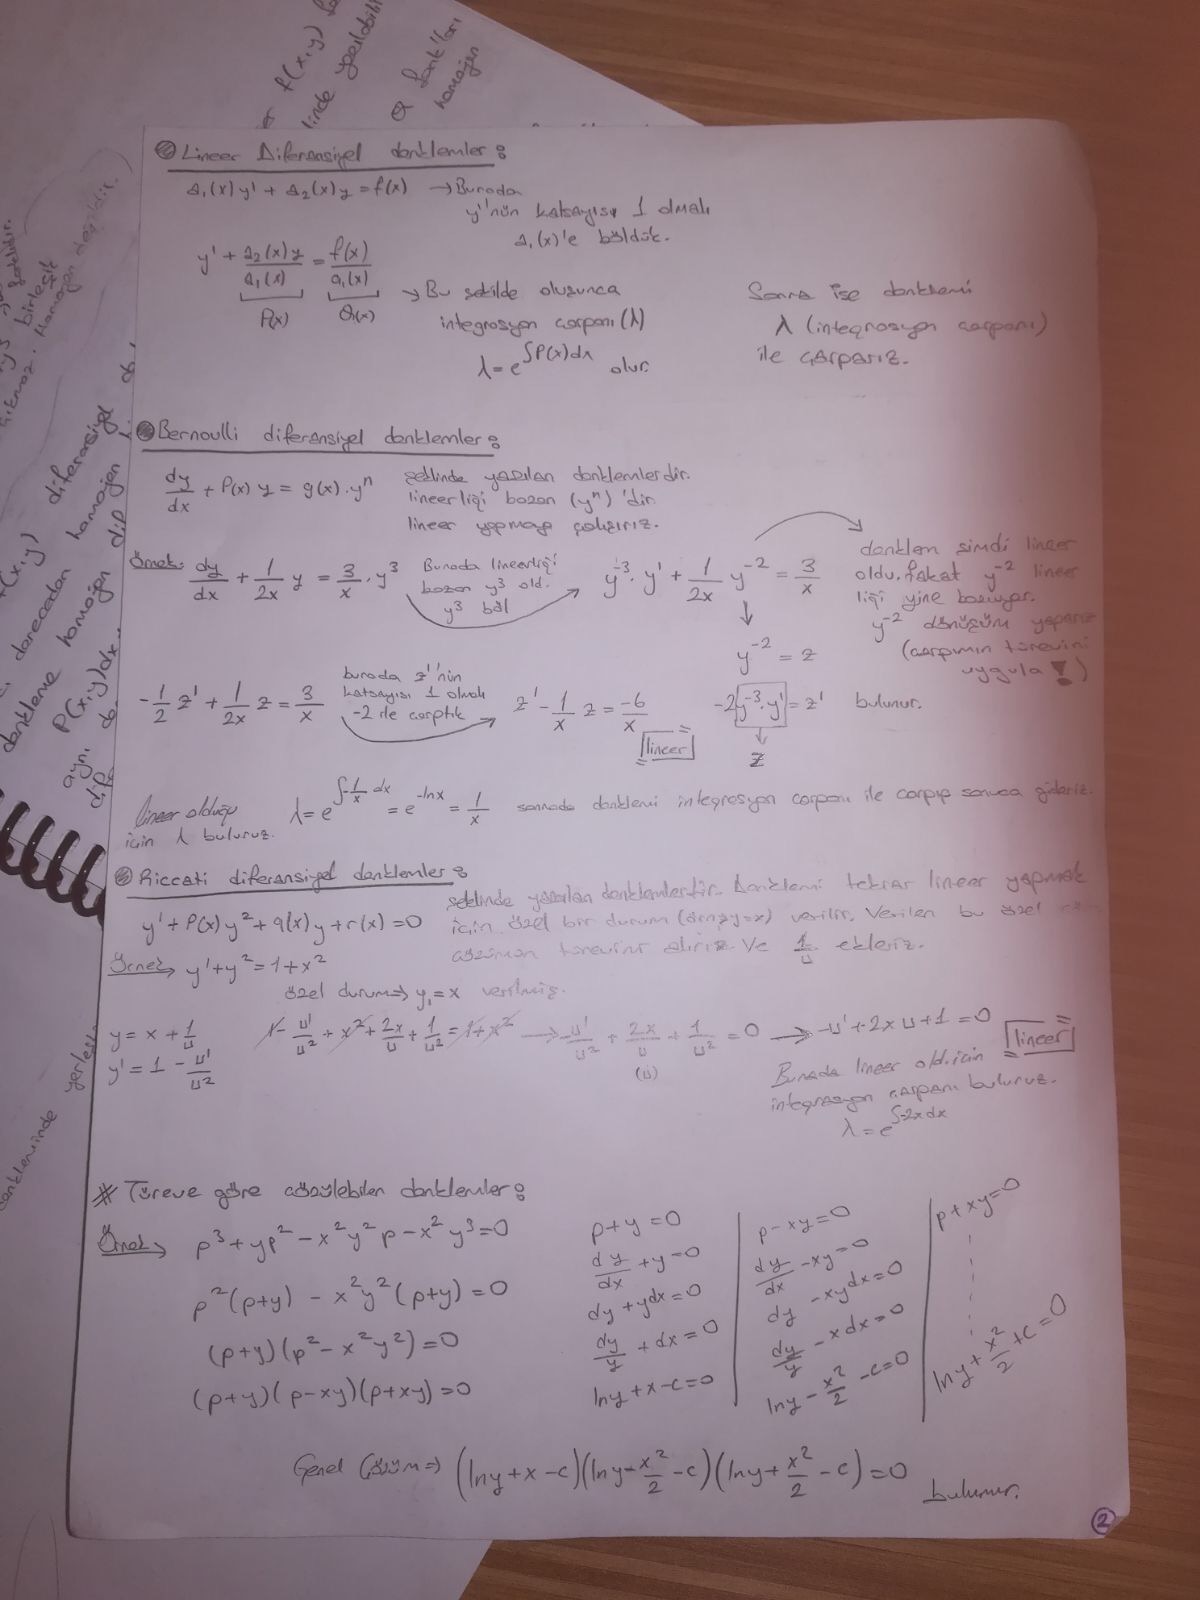 Lineer Diferansiyel denklemler:
a₁(x)y' + a₂(x)y = f(x) → Burada
y''nün katsayısı 1 olmalı
a₁(x)'e böldük.
y' + a₂(x)y/a₁(x) = f(x)/a₁(x)
P(x) Q(x)
→ Bu şekilde oluşunca
integrasyon çarpanı (λ)
λ = e^∫P(x)dx olur.
Sonra ise denklemi
λ (integrasyon çarpanı)
ile çarparız.
Bernoulli diferansiyel denklemler:
dy/dx + P(x) y = g(x).yⁿ
şeklinde yazılan denklemlerdir.
lineerliği bozan (yⁿ) 'dir.
lineer yapmaya çalışırız.
Örnek: dy/dx + 1/2x y = 3/x . y³
Burada lineerliği
bozan y³ old.
y³ böl
y⁻³. y' + 1/2x y⁻² = 3/x
denklem şimdi lineer
oldu. fakat y⁻² lineer
liği yine bozuyor.
y⁻² dönüşüm yaparız
(çarpımın türevini
uygula !)
y⁻² = z
-1/2 z' + 1/2x z = 3/x
burada z''nün
katsayısı 1 olmalı
-2 ile çarptık
z' - 1/x z = -6/x
lineer
-2 y⁻³. y' = z' bulunur.
z
lineer olduğu
için λ buluruz.
λ = e^∫-1/x dx = e^-lnx = 1/x sonrada denklemi integrasyon çarpanı ile çarpıp sonuca gideriz.
Riccati diferansiyel denklemler:
y' + P(x) y² + q(x) y + r(x) = 0
şeklinde yazılan denklemlerdir. Denklemi tekrar lineer yapmak
için özel bir durum (örn→y=x) verilir. Verilen bu özel
çözümün türevini alırız. Ve 1/u ekleriz.
Örnek→ y' + y² = 1 + x²
özel durum⇒ y₁ = x verilmiş.
y = x + 1/u
y' = 1 - u'/u²
1 - u'/u² + x² + 2x/u + 1/u² = 1 + x² → -u'/u² + 2x/u + 1/u² = 0 → -u' + 2xu + 1 = 0
(u)
lineer
Burada lineer old. için
integrasyon çarpanı buluruz.
λ = e^∫-2xdx
* Türeve göre çözülebilen denklemler:
Örnek→ p³ + yp² - x²y²p - x²y³ = 0
p²(p+y) - x²y²(p+y) = 0
(p+y)(p² - x²y²) = 0
(p+y)(p-xy)(p+xy) = 0
p + y = 0
dy/dx + y = 0
dy + ydx = 0
dy/y + dx = 0
lny + x - c = 0
p - xy = 0
dy/dx - xy = 0
dy - xydx = 0
dy/y - xdx = 0
lny - x²/2 - c = 0
p + xy = 0
lny + x²/2 + c = 0
Genel Çözüm⇒ (lny + x - c)(lny - x²/2 - c)(lny + x²/2 - c) = 0
bulunur.
2